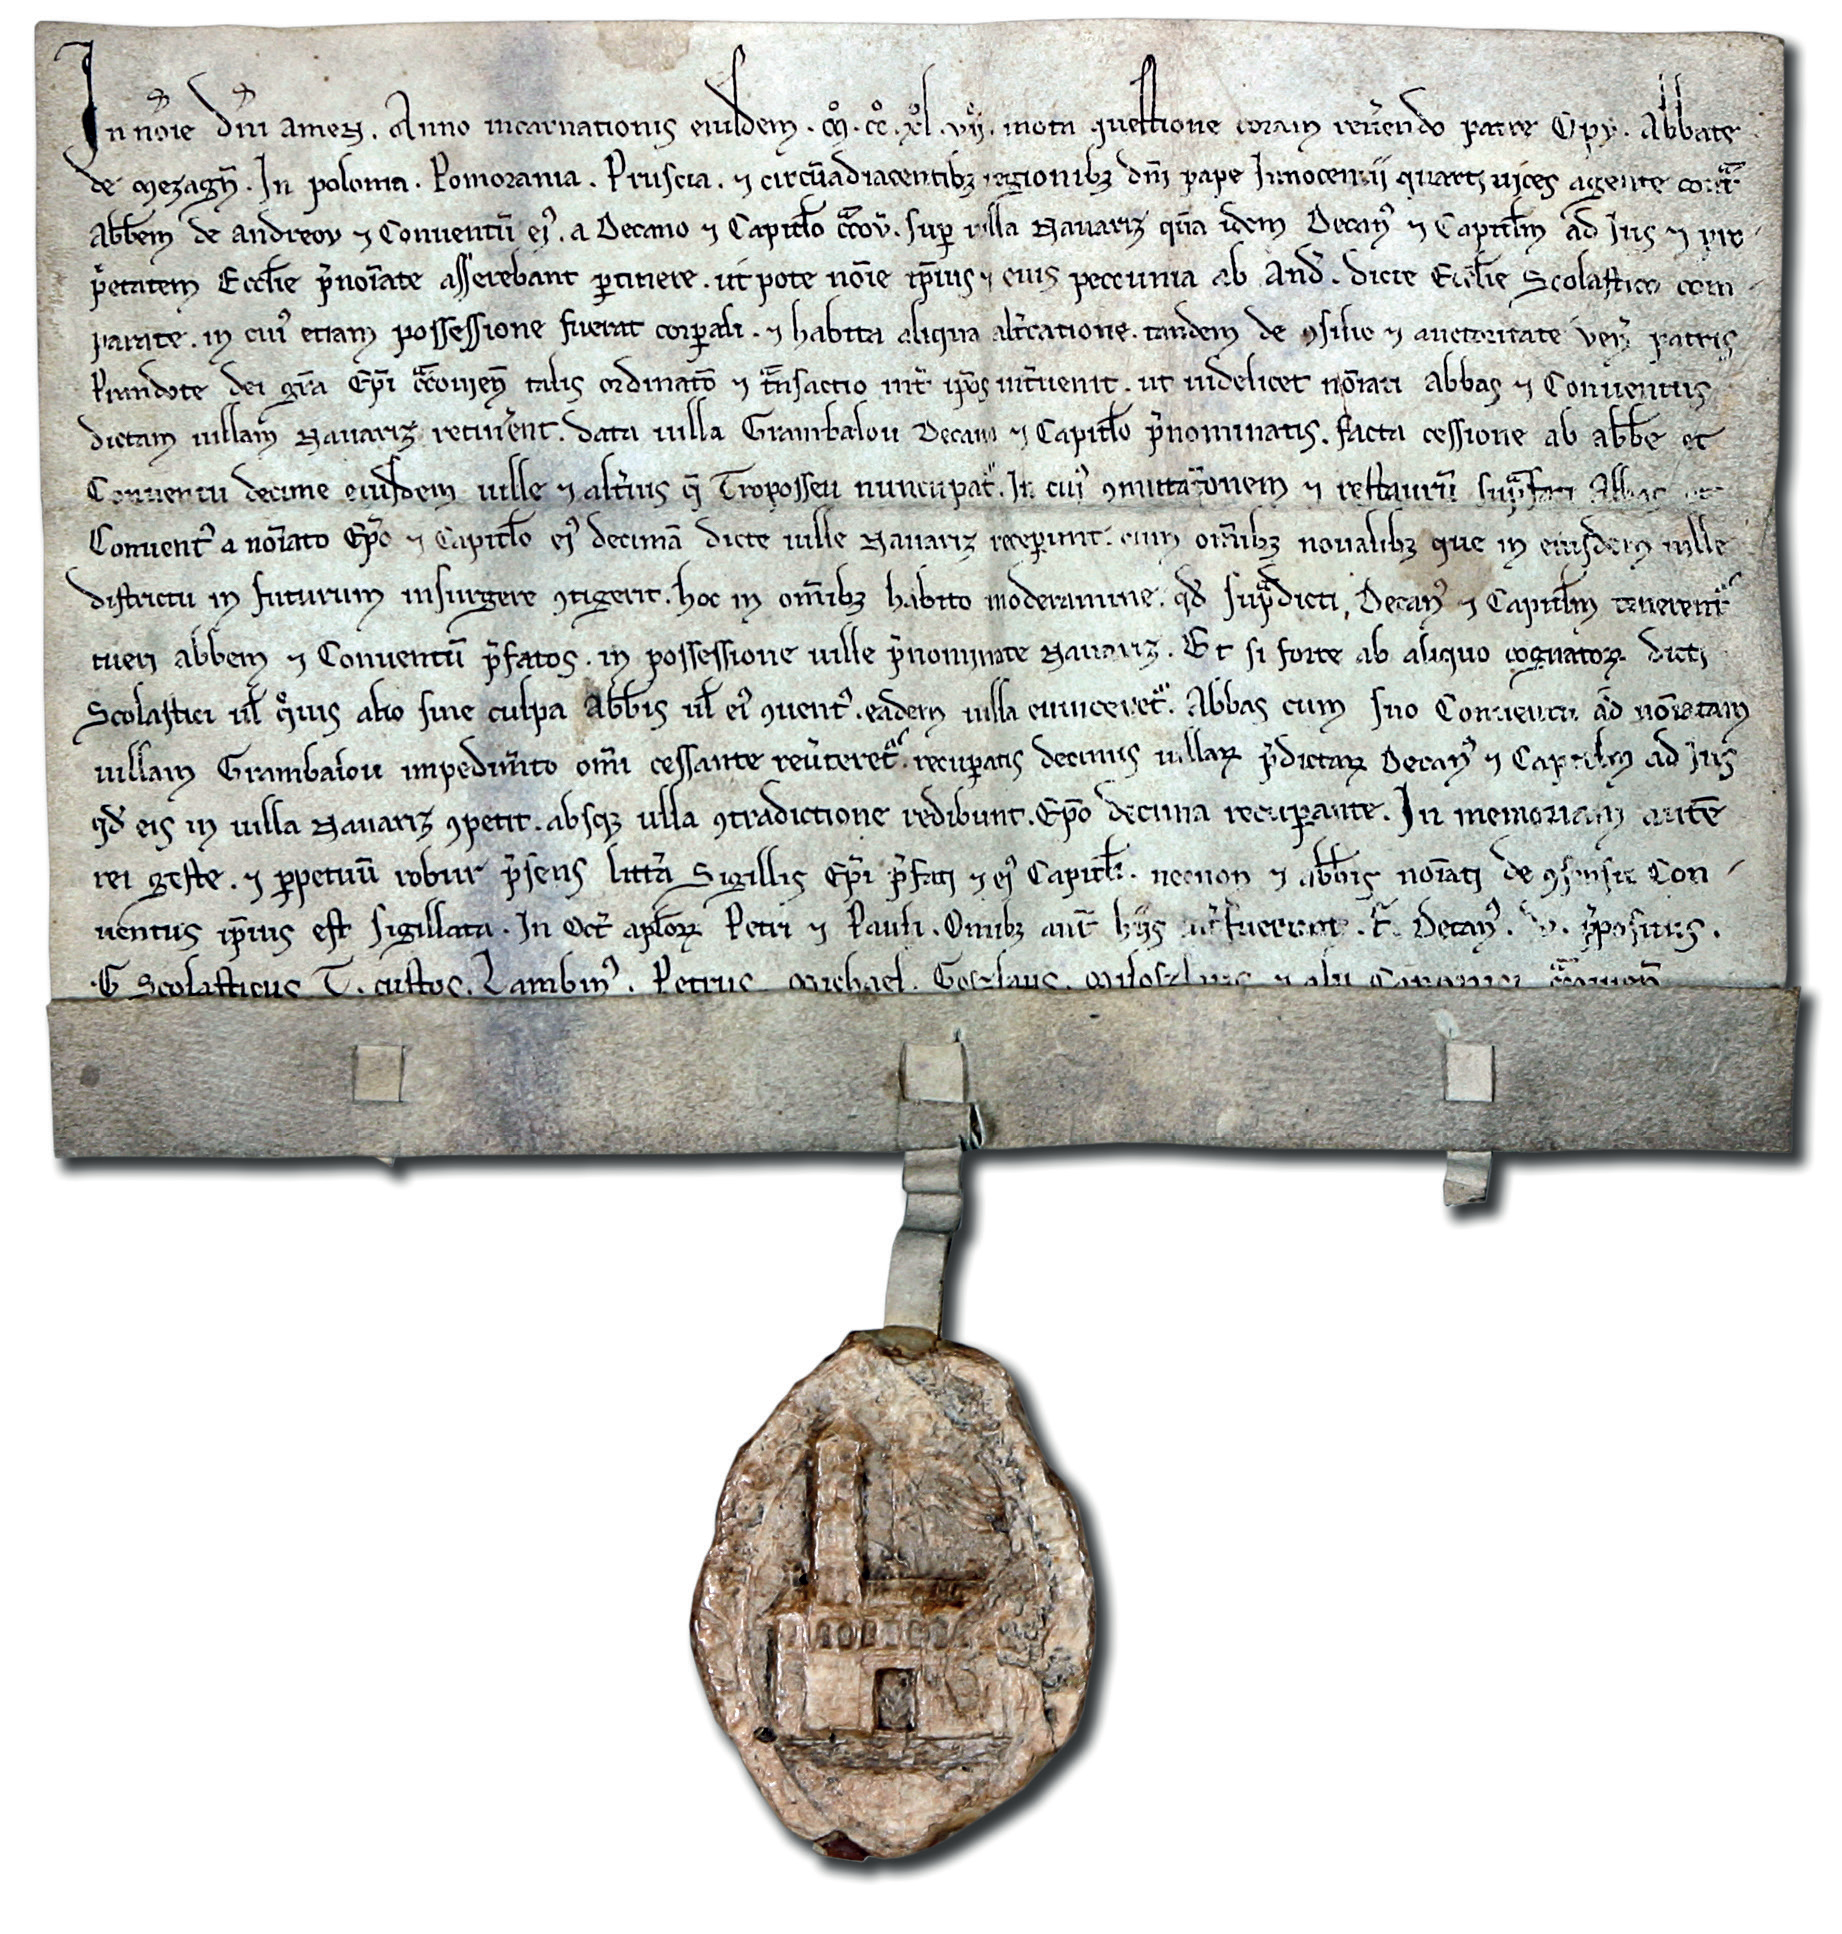 In no̅ie dn̅i amen. Anno incarnationis eiusdem. mͦ. ccͦ. xͦl. vijͦ. mota questione coram reu̅endo patre Opy. Abbate
de mezagn̅. In polonia. Pomorania. Pruscia. ⁊ circu̅adiacentibꝫ regionibꝫ dn̅i pape Innocentij quarti uices agente cont̅
Abb̅em de andreov ⁊ Conuentu̅ eiꝰ. a Decano ⁊ Capitl̅o c̅cov̅. sup̲ villa Nauariz qua̅ idem Decanꝰ ⁊ Capitl̅m ad Ius ⁊ pro
p̅etatem Eccl̅ie p̅no̅iate asserebant p̲tinere. ut pote no̅ie ip̅ius ⁊ eius peccunia ab And̅. dicte Eccl̅ie Scolastico com
parate. in cuiꝰ etiam possessione fuerat corp̲ali. ⁊ habita aliqua alt̅catione. tandem de ꝯsilio ⁊ auctoritate ven̅ patris
Prandote dei gr̅a Ep̅i c̅couien̅ talis ordinato̅ ⁊ t̅nsactio int̅ ip̅os int̅uenit. ut uidelicet no̅iati Abbas ⁊ Conuentus
dictam uillam Nauariz retin̅ent. data uilla Grambalou Decano ⁊ Capitl̅o p̅nominatis. facta cessione ab abb̅e et
Conuentu decime eiusdem uille ⁊ alt̅ius q̅ Troposseu nuncupat̅. In cuiꝰ ꝯmutta̅onem ⁊ restauru̅ sup̅fati Abbas et
Conuentꝰ a no̅iato Ep̅o ⁊ Capitl̅o eiꝰ decima̅ dicte uille Nauariz recep̲unt. cum om̅ibꝫ noualibꝫ que in eiusdem uille
districtu in futurum insurgere ꝯtigerit. hoc in om̅ibꝫ habito moderamine. qd̅ sup̅dicti, Decanꝰ ⁊ Capitl̅m tenerent̅
tueri abbem ⁊ Conuentu̅ p̅fatos. in possessione uille p̅nominate Nauariz. Et si forte ab aliquo cognatoꝝ dicti
Scolastici ul̅ qͦuis alio sine culpa Abb̅is ul̅ eiꝰ ꝯuentꝰ. eadem uilla euinceret̅. Abbas cum suo Conuentu ad no̅iatam
uillam Grambalou impedim̅to om̅i cessante reu̅teret̅. recup̲atis decimis uillaꝝ p̅dictaꝝ Decanꝰ ⁊ Capitl̅m ad Ius
qd̅ eis in uilla Nauariz ꝯpetit. absqꝫ ulla ꝯtradictione redibunt. Ep̅o decima recup̲ante. In memoriam aute̅
rei geste. ⁊ p̲petuu̅ robur p̅sens litt̅a Sigillis Ep̅i p̅fati ⁊ eiꝰ Capitl̅i. necnon ⁊ abb̅is no̅iati de ꝯsensu Con
uentus ip̅ius est sigillata. In Oct̅ apl̅oꝝ Petri ⁊ Pauli. Omibꝫ aut̅ hijs int̅fuerunt. Decanꝰ. p̅positus.
G Scolasticus T. custos. Lambinꝰ. Petrus. Michael. Goszlaus. ⁊ alii Canonici c̅couien̅